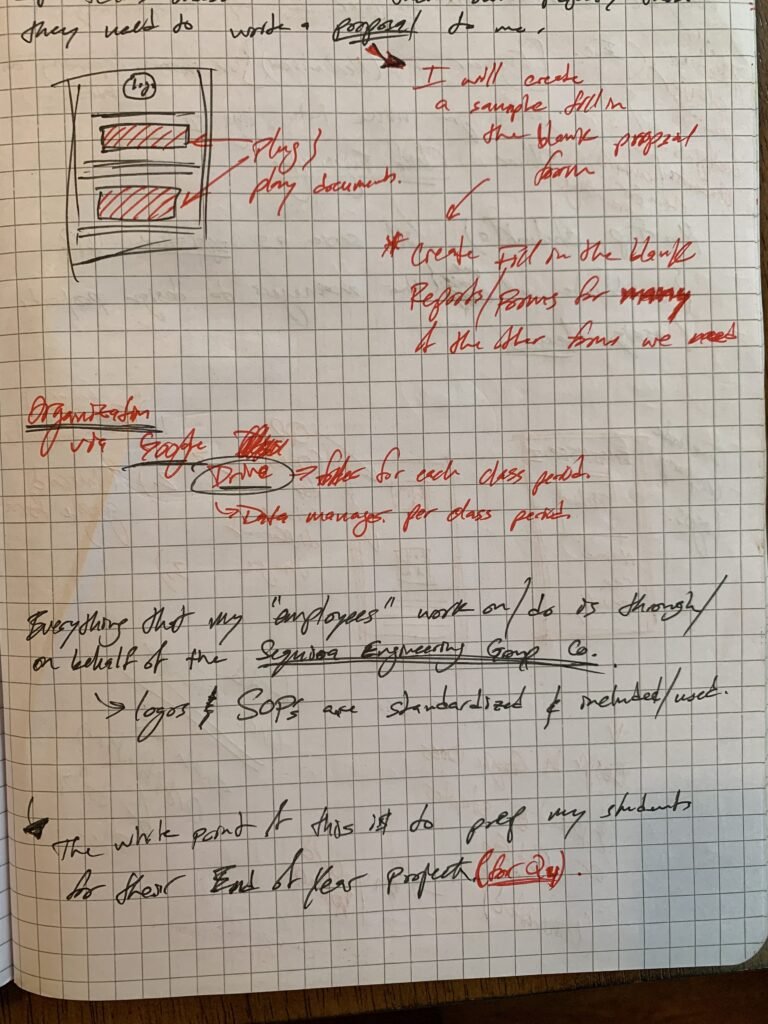 they need to write a proposal to me.
I will create
a sample fill in
the blank proposal
form
Logo
plug &
play documents.
* Create Fill in the blank
Reports/Forms for
of the other forms we need
Organization
via Google
Drive → folder for each class period.
↳ Data manager per class period.
Everything that my "employees" work on/do is through/
on behalf of the Sequoia Engineering Group Co.
↳ logos & SOPs are standardized & included/used.
The whole point of this is to prep my students
for their End of Year project (for Q4).